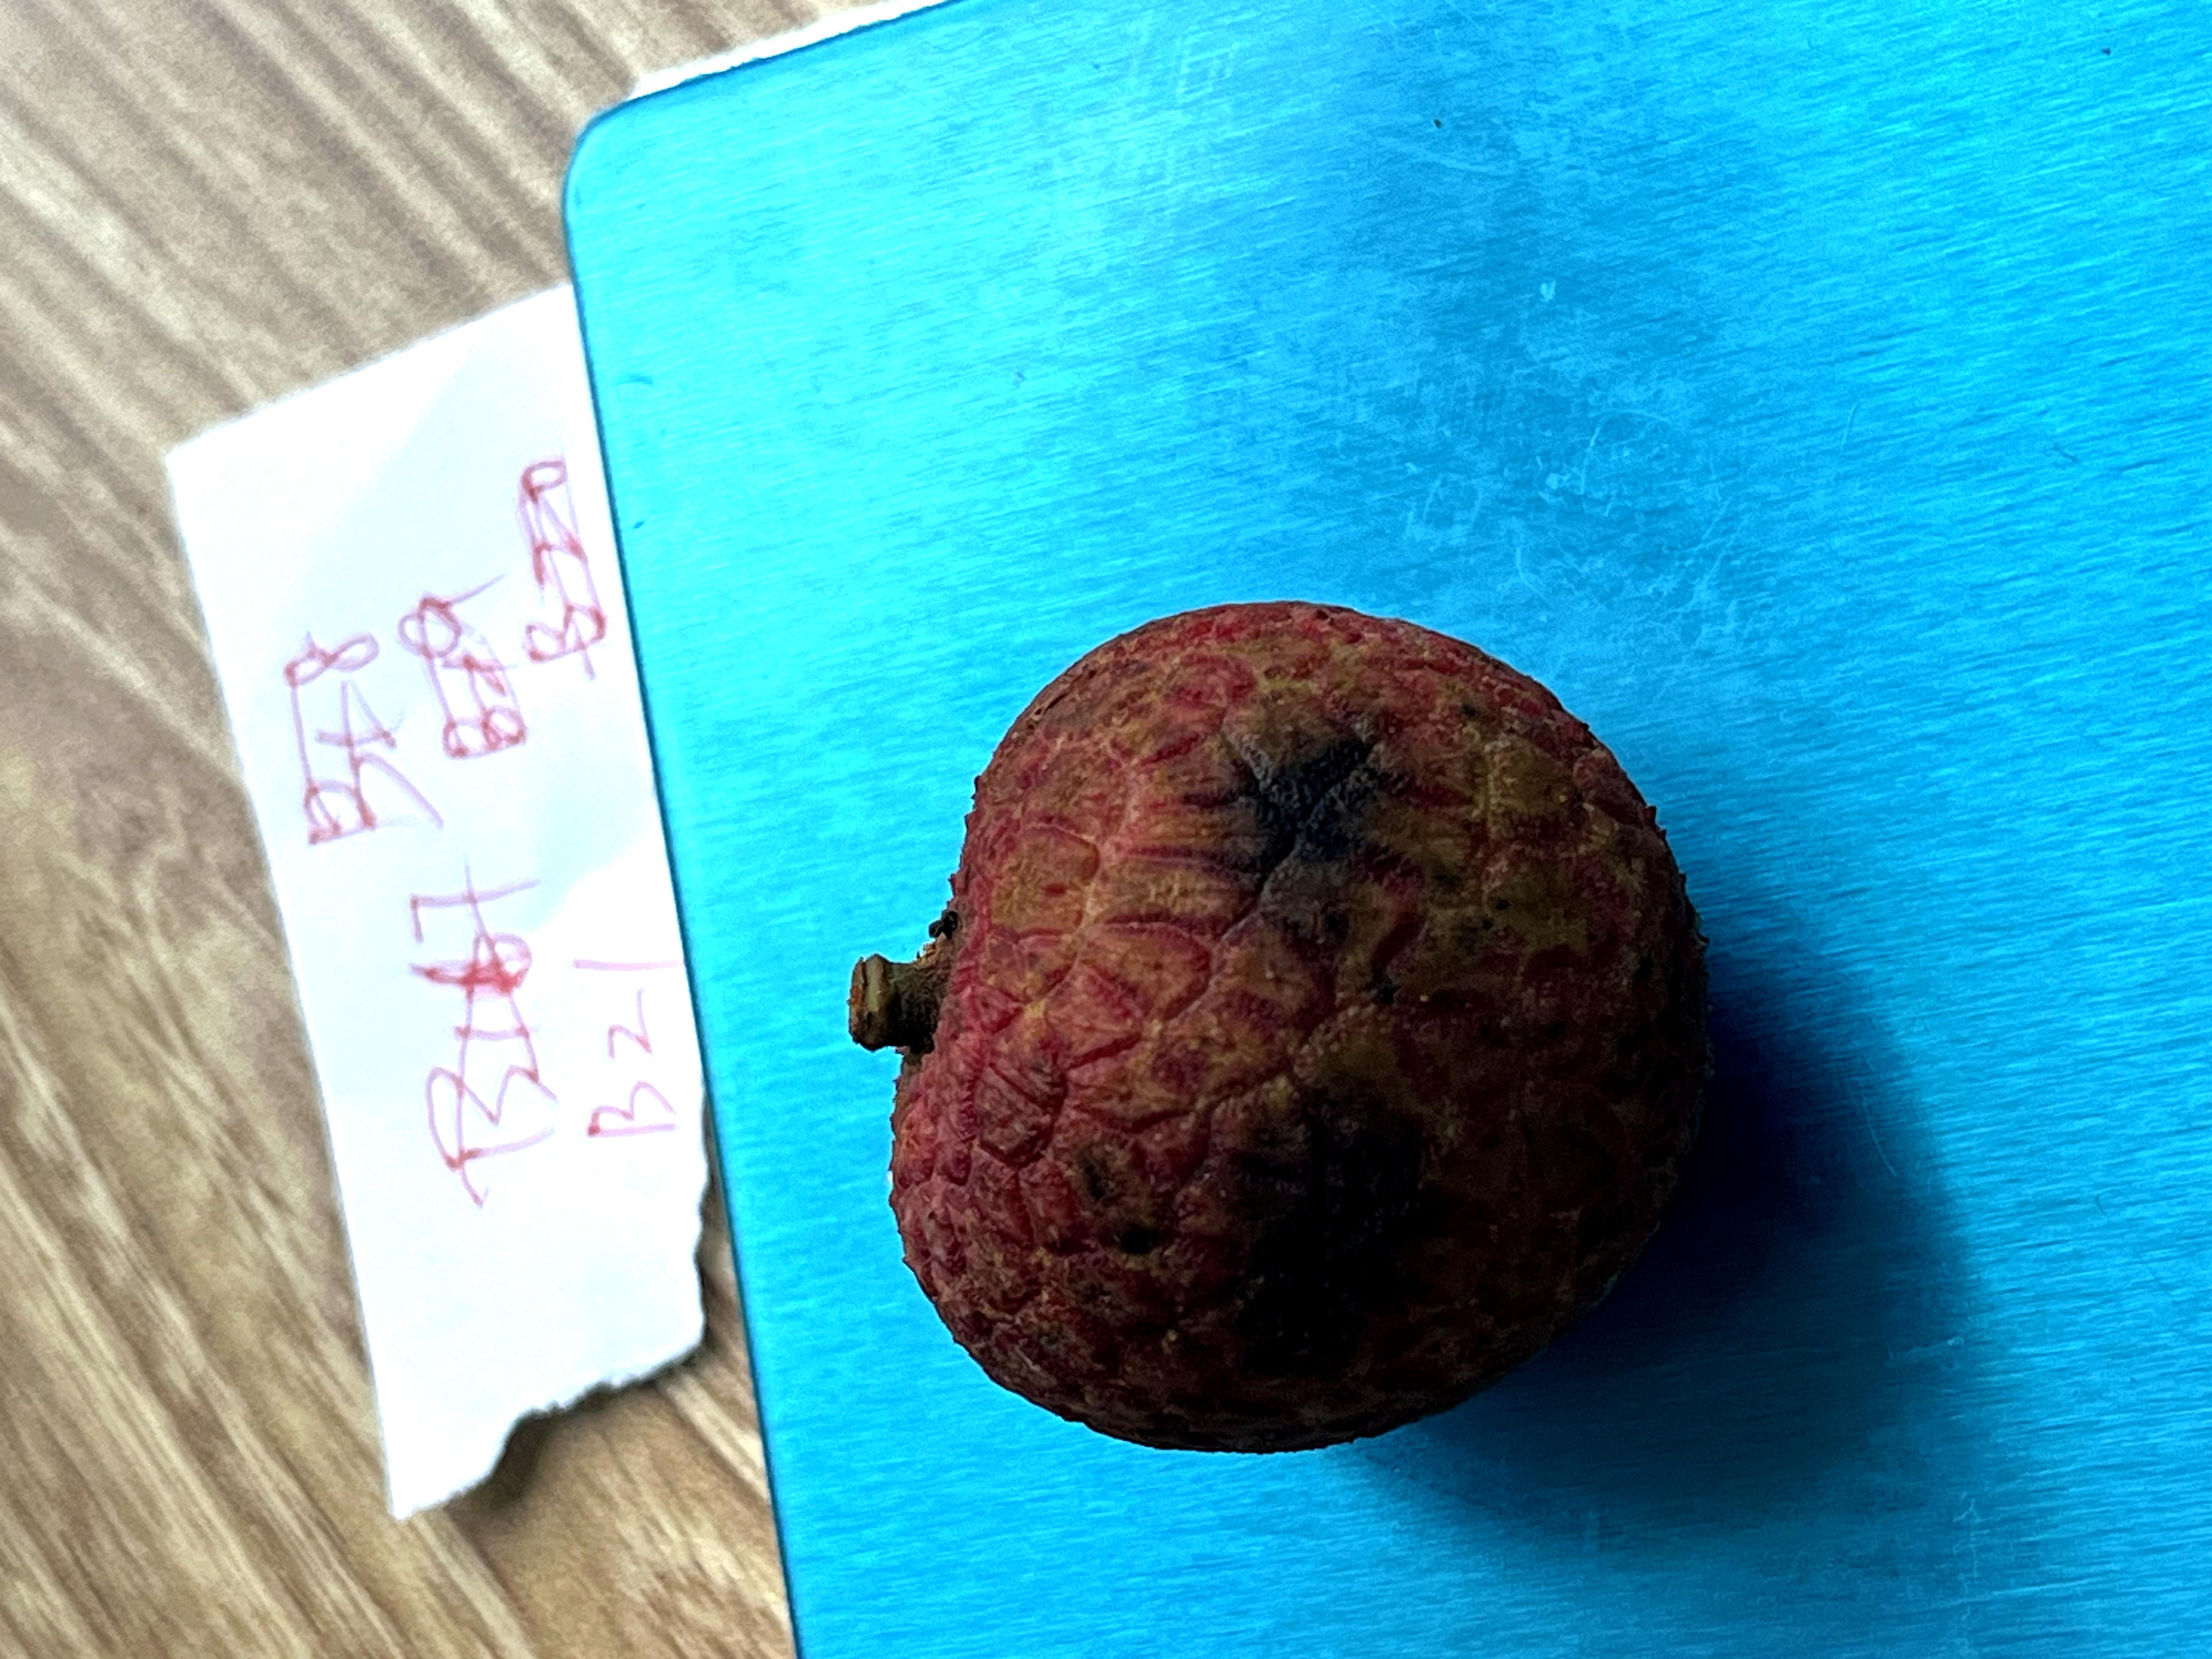 B18
B17
B19
B20
B21